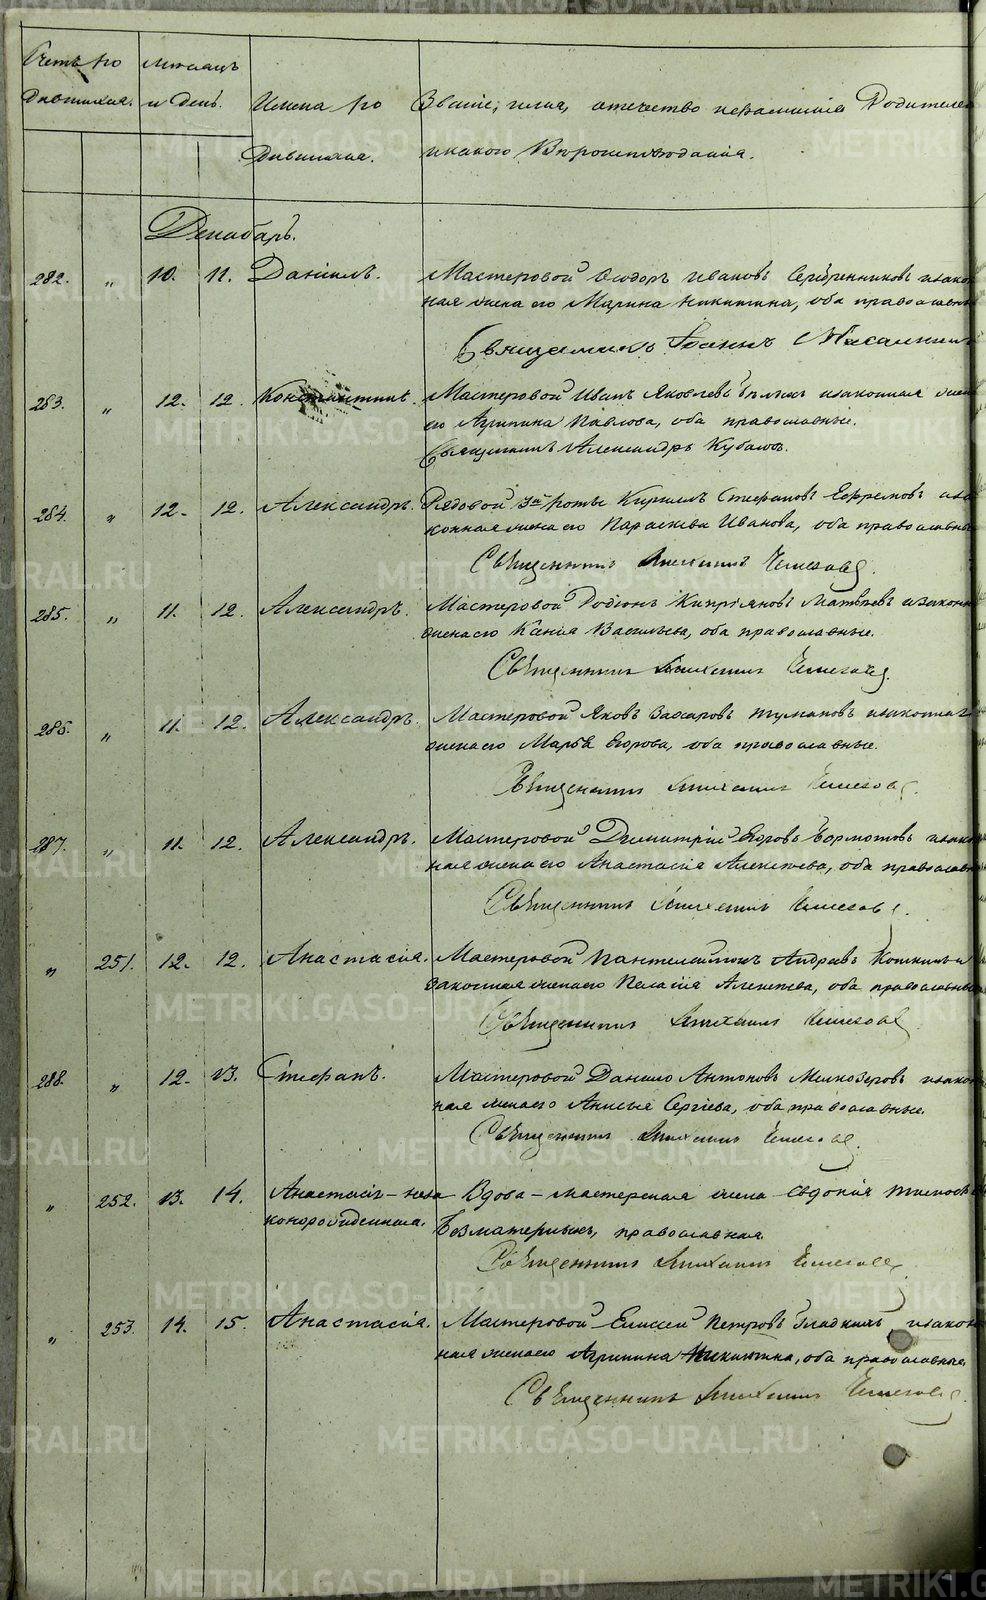 Счетъ ро Месяцъ
дившихся. и День. Имена ро Званіе, имя, отечество Родителей
дившихся. и какого Вероисповеданія.
Декабрь.
282. „ 10. 11. Даніилъ. Мастеровой Ѳеодоръ Ивановъ Серебренниковъ и закон
ная жена его Марина Никитина, оба православные
Священникъ Іоаннъ
283. „ 12. 12. Константинъ. Мастеровой Иванъ Яковлевъ и законная жена
его Агрипина Павлова, оба православные.
Священникъ Александръ
284. „ 12. 12. Александръ. Рядовой 3й роты Кириллъ Стефановъ Ефремовъ и за
конная жена его Параскева Иванова, оба православные
Священникъ Михаилъ
285. „ 11. 12. Александръ. Мастеровой Родіонъ Кипріяновъ Матвеевъ и законная
жена его Ксенія Васильева, оба православные.
Священникъ Михаилъ
286. „ 11. 12. Александръ. Мастеровой Яковъ Захаровъ Тумановъ и законная
жена его Марья Егорова, оба православные.
Священникъ Михаилъ
287. „ 11. 12. Александръ. Мастеровой Димитрій Егоровъ Бормотовъ и закон
ная жена его Анастасія Алексеева, оба православные
Священникъ Михаилъ
„ 251. 12. 12. Анастасія. Мастеровой Пантелеймонъ Андреевъ и
законная жена его Пелагія Алексеева, оба православные
Священникъ Михаилъ
288. „ 12. 13. Стефанъ. Мастеровой Данило Антоновъ Мелкозеровъ и закон
ная жена его Анисья Сергіева, оба православные.
Священникъ Михаилъ
„ 252. 13. 14. Анастасія – неза Вдова – мастерская жена Евдокія
конорожденная. Безматерныхъ, православная.
Священникъ Михаилъ
„ 253. 14. 15. Анастасія. Мастеровой Елисей Петровъ Гладкихъ и закон
ная жена его Агрипина Никитина, оба православные.
Священникъ Михаилъ
METRIKI.GASO-URAL.RU